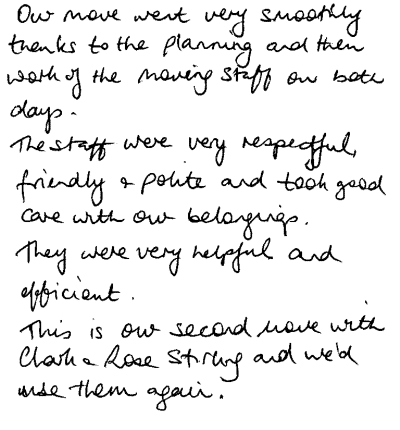 Our move went very smoothly
thanks to the planning and then
work of the moving staff on both
days.
The staff were very respectful,
friendly & polite and took good
care with our belongings.
They were very helpful and
efficient.
This is our second move with
Clark & Rose Stirling and we'd
use them again.